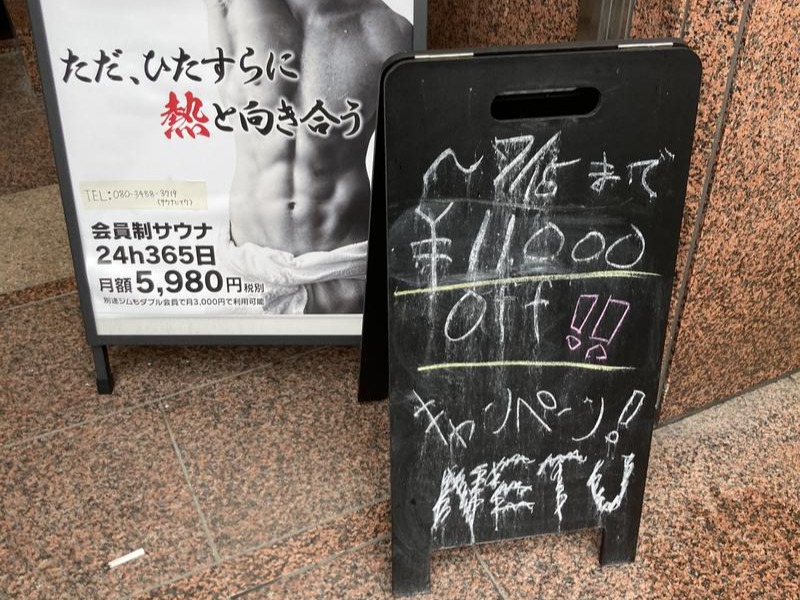 ただ、ひたすらに
熱と向き合う
TEL:080-3488-3719
会員制サウナ
24h365日
月額5,980円税別
別途ジムもダブル会員で月3,000円で利用可能
~7/15まで
¥11000
Off!!
キャンペーン!
NETU